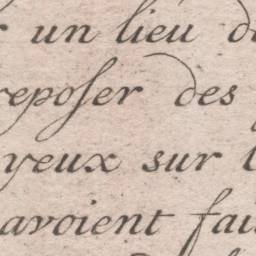 un lieu d
reposer des
yeux sur l
avoient fai